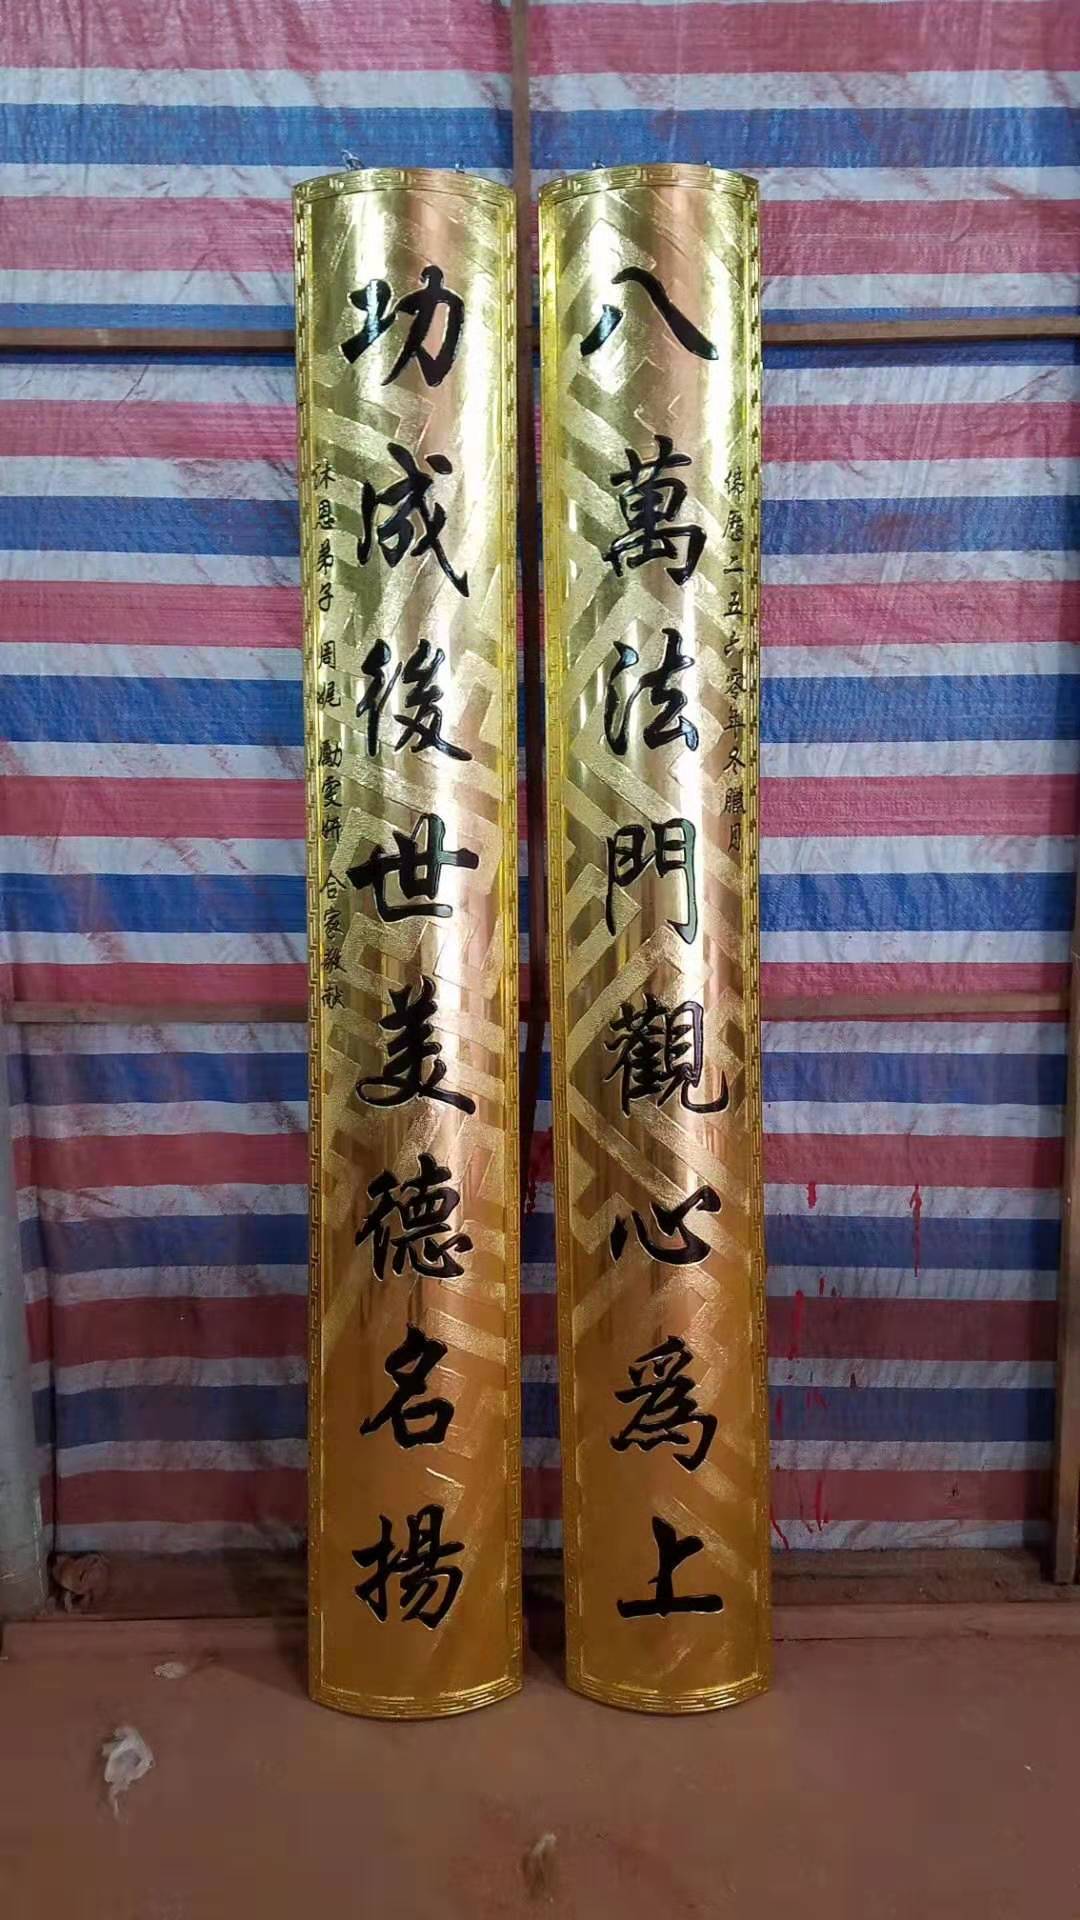 佛歷二五六零年冬臘月
八萬法門觀心為上
功成後世美德名揚
沐恩弟子 周娓 勵雯妍 合家敬献